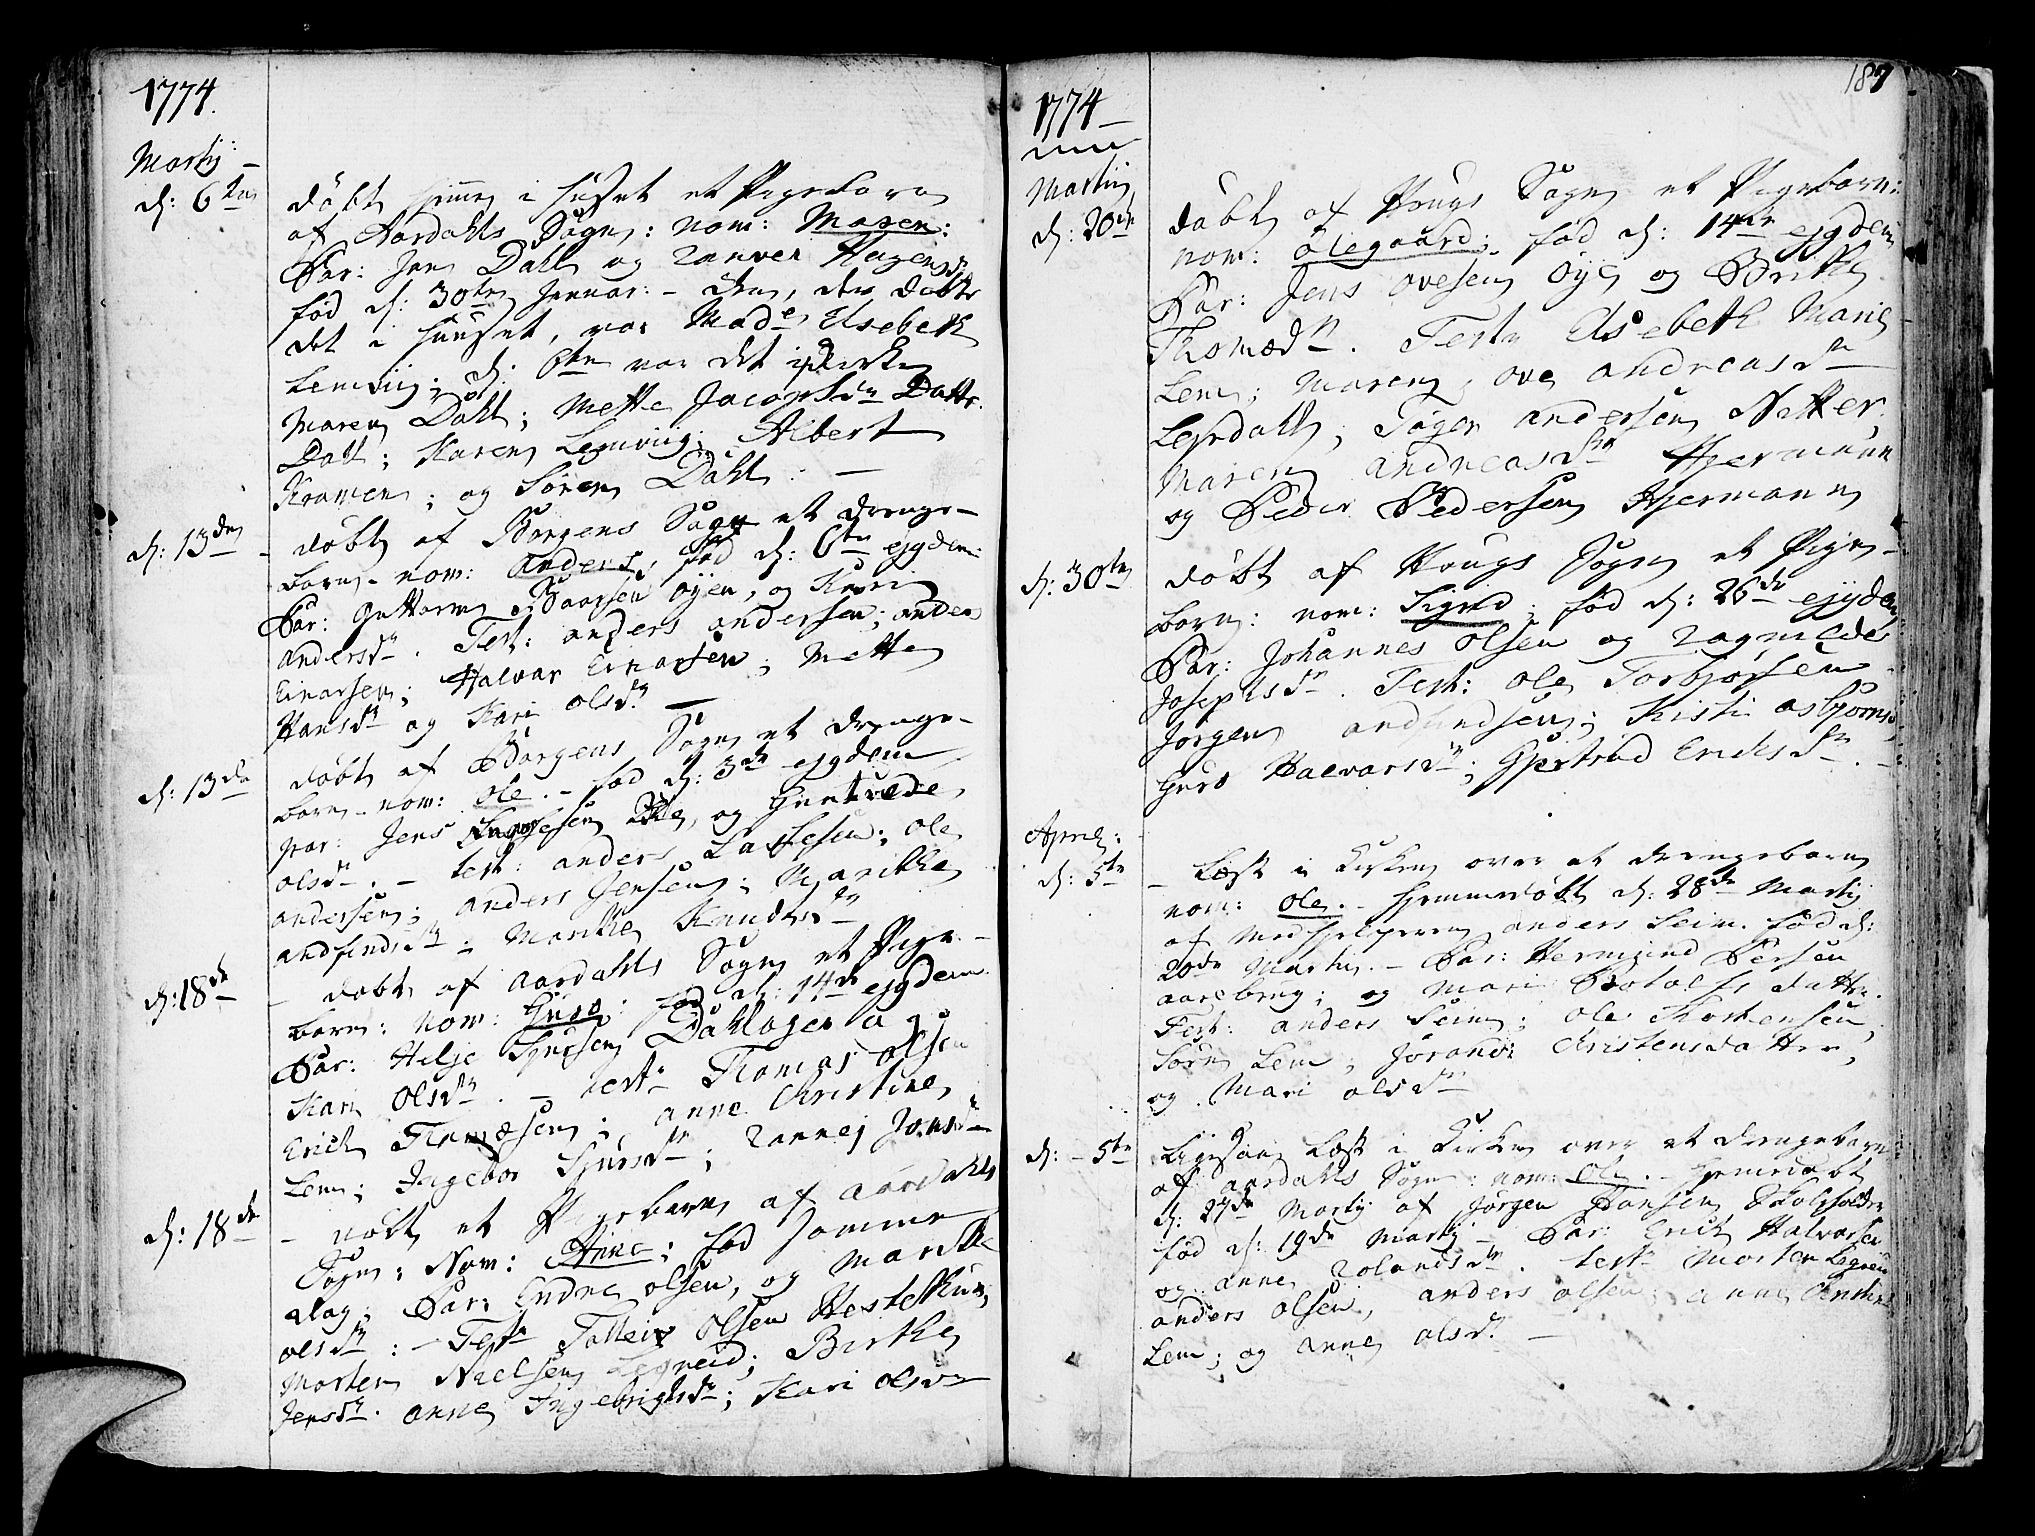 1774.
Martij
d: 6te
døbt hjemme i Huset et Pigebarn
af Aardahls Sogn: nom: Maren:
Par: Jens Dahl og Hagensd
fød d: 30te Januar: - den, der døbte
det i Huuset, var Made Elsebeth
Lemvig; d: 6te var det i Kirken
Maren Dahl; Mette Jacobsdn Dattr
Dahl; Karen Lemvig; Albert
Kramer; og Søren Dahl. —
d: 13de
døbt af Borgens Sogn et Drenge-
barn - nom: Anders, fød d: 6te ejgdem
Par: Guttorm Baarsen Øyen, og Kari
Andersdn. Test: Anders Andersen; Anders
Einarsen; Halvar Einarsen; Mette
Hansdn og Kari Olsdn. —
d: 13de
døbt af Borgens Sogn et Drenge-
barn - nom: Ole. - fød d: 3de ejgdem
par: Jens og
Olsdn. - test: Anders Lassesen; Ole
Andersen; Anders Jensen; Marithe
Andfindsdn; Marithe Knudsdn
d: 18de
- døbt af Aardahls Sogn et Pige-
barn: nom: Guro: fød d: 14de ejgdem
Par: Helje Sjursen Dahlagen og
Kari Olsdn. - test: Thomas Olsen
Erich Thomæsen; Anne Christine
Lem; Ingebor Sjursdn; Jonsdn
d: 18de
- nodt et Pigebarn af Aardahls
Sogn; Nom: Anne; fød samme
dag; Par: Endre Olsen, og Marithe
Olsdn: - Test Tolleiv Olsen
Morten Nielsen Legreid; Birthe
Jensdn. Anne Ingebrigtsdn; Kari Olsdn
1774
187
Martij
d: 20de
døbt af Hougs Sogn et Pigebarn:
nom: Olegaard; fød d: 14de ejgdem
Par: Jens Ovesen Øye og Brithe
Thomædn. Test Elsebeth Marie
Lem; Maren, Ove Andreasdn
Leyrdahl; Tøger Andersen Netter;
Maren Andreasdn Hjermann
og Peder Pedersen Hjermann
d: 30te
døbt af Hougs Sogn et Pige-
barn: nom: Sigrid; fød d: 26de ejgdem
Par: Johannes Olsen og Ragnilde
Josephsdn. Test: Ole Torbjørsen
Jørgen Andfindsen; Kisti Asbjørnsd,
Guro Halvarsdn; Gjertrud Erichsdn. -
April:
d: 5te
- Læst i Kirken over et Drengebarn
nom: Ole. - hjemmedøbt d: 28de Martij
af Medhjelperen Anders Seim. fød d:
20de Martij. - Par: Hermund Persen
Aarebrug; og Mari Botolfs datter.
Test: Anders Seim; Ole Thorstensen,
Sørn Lem; Jørand Christensdatter,
og Mari Olsdn
d: - 5te
Ligesaa Læst i Kirken over et Drengebarn
af Aardahls Sogn: nom: Ole. - hjemedøbt
d: 27de Martij af Jørgen Hansen Skoleholder
fød d: 19de Martij - Par: Erich Halvarsen
og Anne Rolandsdn. test Morten Legreid
Anders Olsen, Anders Olsen; Anne Christine
Lem; og Anne Olsd. —